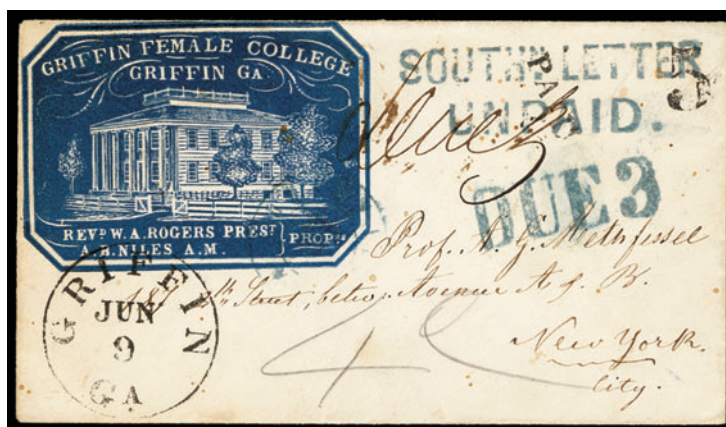 GRIFFIN FEMALE COLLEGE
GRIFFIN GA.
REVD W. A. ROGERS PREST
A. B. NILES A.M.
PROPS
SOUTHN. LETTER
UNPAID.
PAID
5
Due 3
DUE 3
GRIFFIN
JUN
9
GA
Prof. A. G. Methfessel
Street, betw. Avenue A & B.
New York.
City.